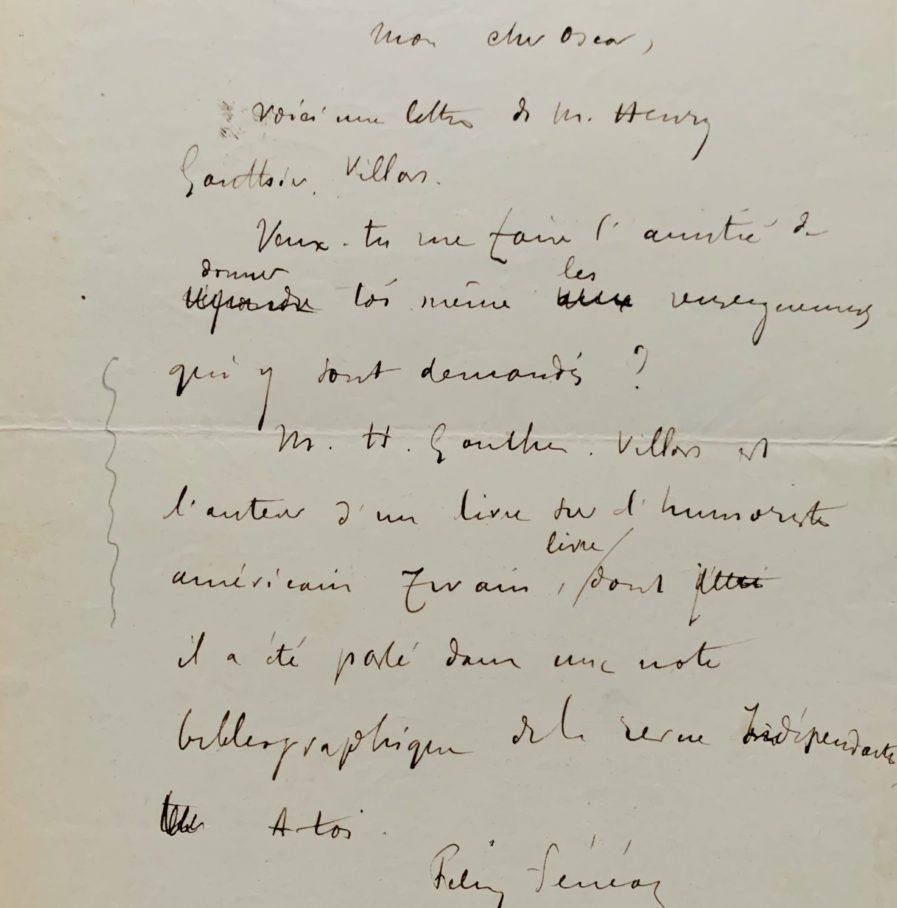 mon cher Oscar,
Voici une lettre de M. Henry
Gauthier. Villars.
Veux-tu me faire l'amitié de
donner les
répondre toi même aux renseignements
qui y sont demandés ?
M. H. Gauthier. Villars est
l'auteur d'un livre sur l'humoriste
livre
américain Twain, dont
il a été parlé dans une note
bibliographique de la revue Indépendante
A toi.
Félix Fénéon